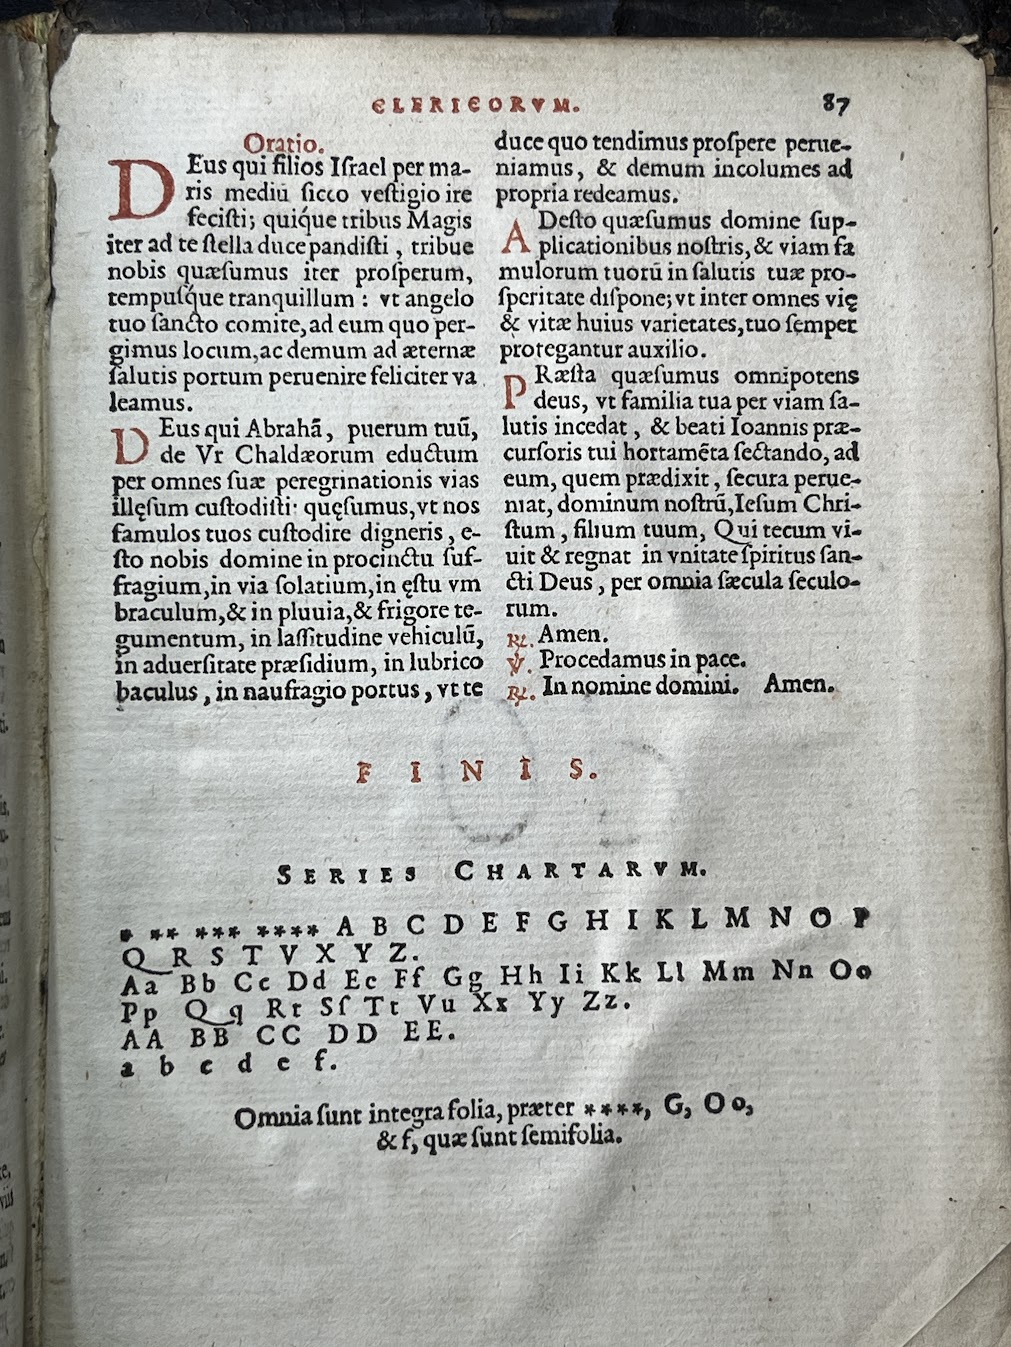 CLERICORVM.
87
Oratio.
DEus qui filios Iſrael per ma-
ris mediū ſicco veſtigio ire
feciſti; quíque tribus Magis
iter ad te ſtella duce pandiſti, tribue
nobis quæſumus iter proſperum,
tempuſque tranquillum: vt angelo
tuo ſancto comite, ad eum quo per-
gimus locum, ac demum ad æternæ
ſalutis portum peruenire feliciter va
leamus.
DEus qui Abrahã, puerum tuũ,
de Vr Chaldæorum eductum
per omnes ſuæ peregrinationis vias
illęſum cuſtodiſti: quęſumus, vt nos
famulos tuos cuſtodire digneris, e-
ſto nobis domine in procinctu ſuf-
fragium, in via ſolatium, in ęſtu vm
braculum, & in pluuia, & frigore te-
gumentum, in laſſitudine vehiculũ,
in aduerſitate præſidium, in lubrico
baculus, in naufragio portus, vt te
duce quo tendimus proſpere perue-
niamus, & demum incolumes ad
propria redeamus.
ADeſto quæſumus domine ſup-
plicationibus noſtris, & viam fa
mulorum tuorũ in ſalutis tuæ pro-
ſperitate diſpone; vt inter omnes vię
& vitæ huius varietates, tuo ſemper
protegantur auxilio.
PRæſta quæſumus omnipotens
deus, vt familia tua per viam ſa-
lutis incedat, & beati Ioannis præ-
curſoris tui hortamẽta ſectando, ad
eum, quem prædixit, ſecura perue-
niat, dominum noſtrũ, Ieſum Chri-
ſtum, filium tuum, Qui tecum vi-
uit & regnat in vnitate ſpiritus ſan-
cti Deus, per omnia ſæcula ſeculo-
rum.
℟. Amen.
℣. Procedamus in pace.
℟. In nomine domini. Amen.
FINIS.
SERIES CHARTARVM.
* ** *** **** A B C D E F G H I K L M N O P
Q R S T V X Y Z.
Aa Bb Cc Dd Ee Ff Gg Hh Ii Kk Ll Mm Nn Oo
Pp Qq Rr Sſ Tt Vu Xx Yy Zz.
AA BB CC DD EE.
a b c d e f.
Omnia ſunt integra folia, præter ****, G, Oo,
& f, quæ ſunt ſemifolia.